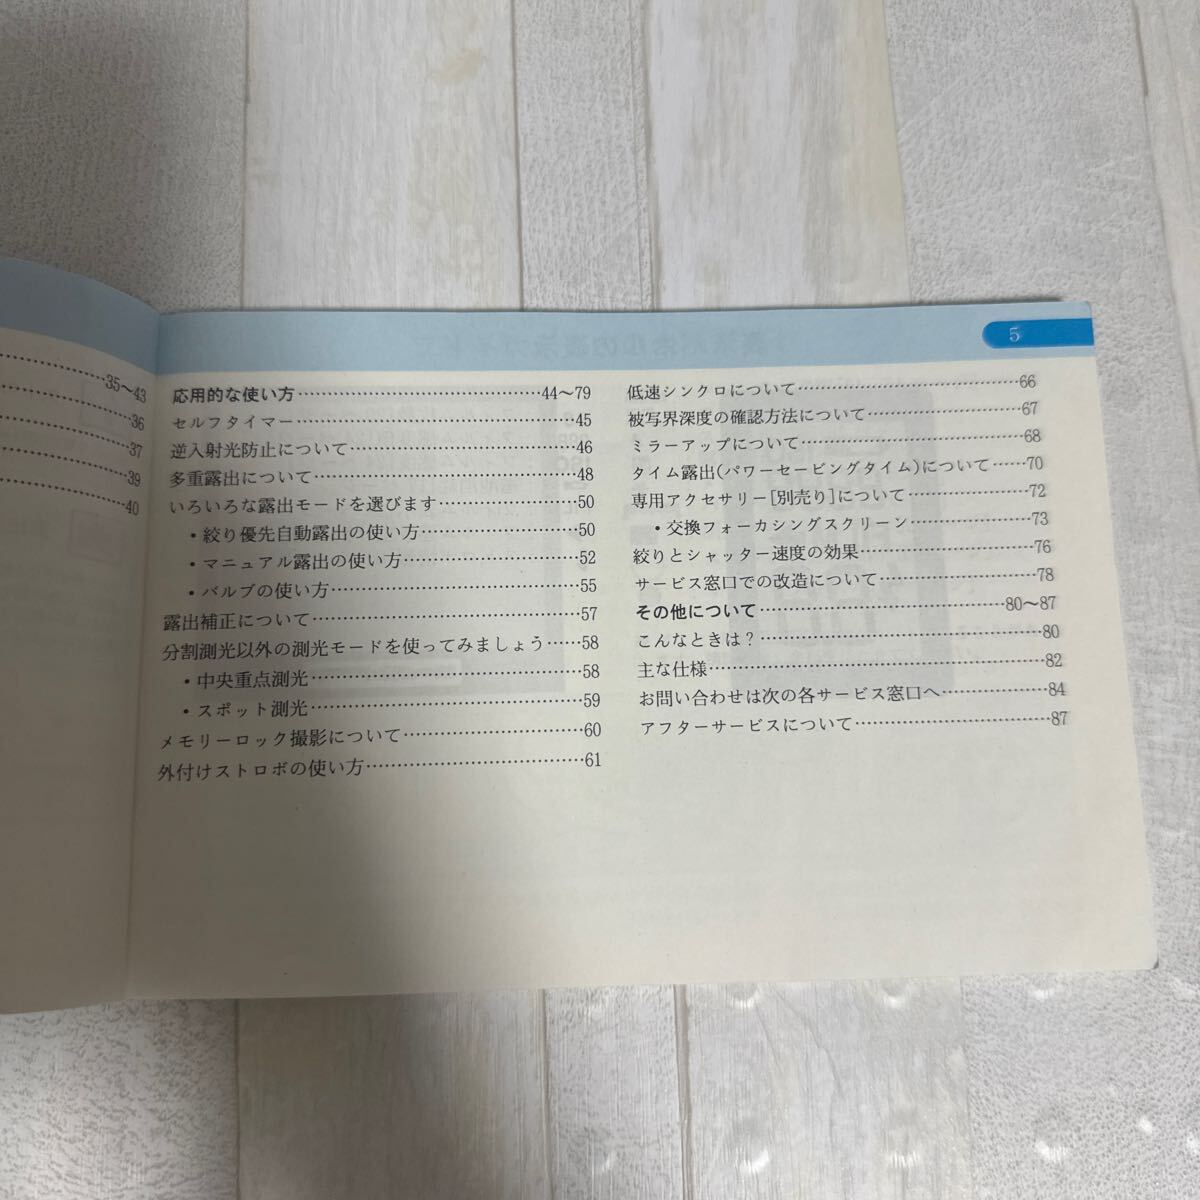 5
35〜43
36
37
39
40
応用的な使い方……44〜79
セルフタイマー……45
逆入射光防止について……46
多重露出について……48
いろいろな露出モードを選びます……50
・絞り優先自動露出の使い方……50
・マニュアル露出の使い方……52
・バルブの使い方……55
露出補正について……57
分割測光以外の測光モードを使ってみましょう……58
・中央重点測光……58
・スポット測光……59
メモリーロック撮影について……60
外付けストロボの使い方……61
低速シンクロについて……66
被写界深度の確認方法について……67
ミラーアップについて……68
タイム露出(パワーセービングタイム)について……70
専用アクセサリー[別売り]について……72
・交換フォーカシングスクリーン……73
絞りとシャッター速度の効果……76
サービス窓口での改造について……78
その他について……80〜87
こんなときは？……80
主な仕様……82
お問い合わせは次の各サービス窓口へ……84
アフターサービスについて……87